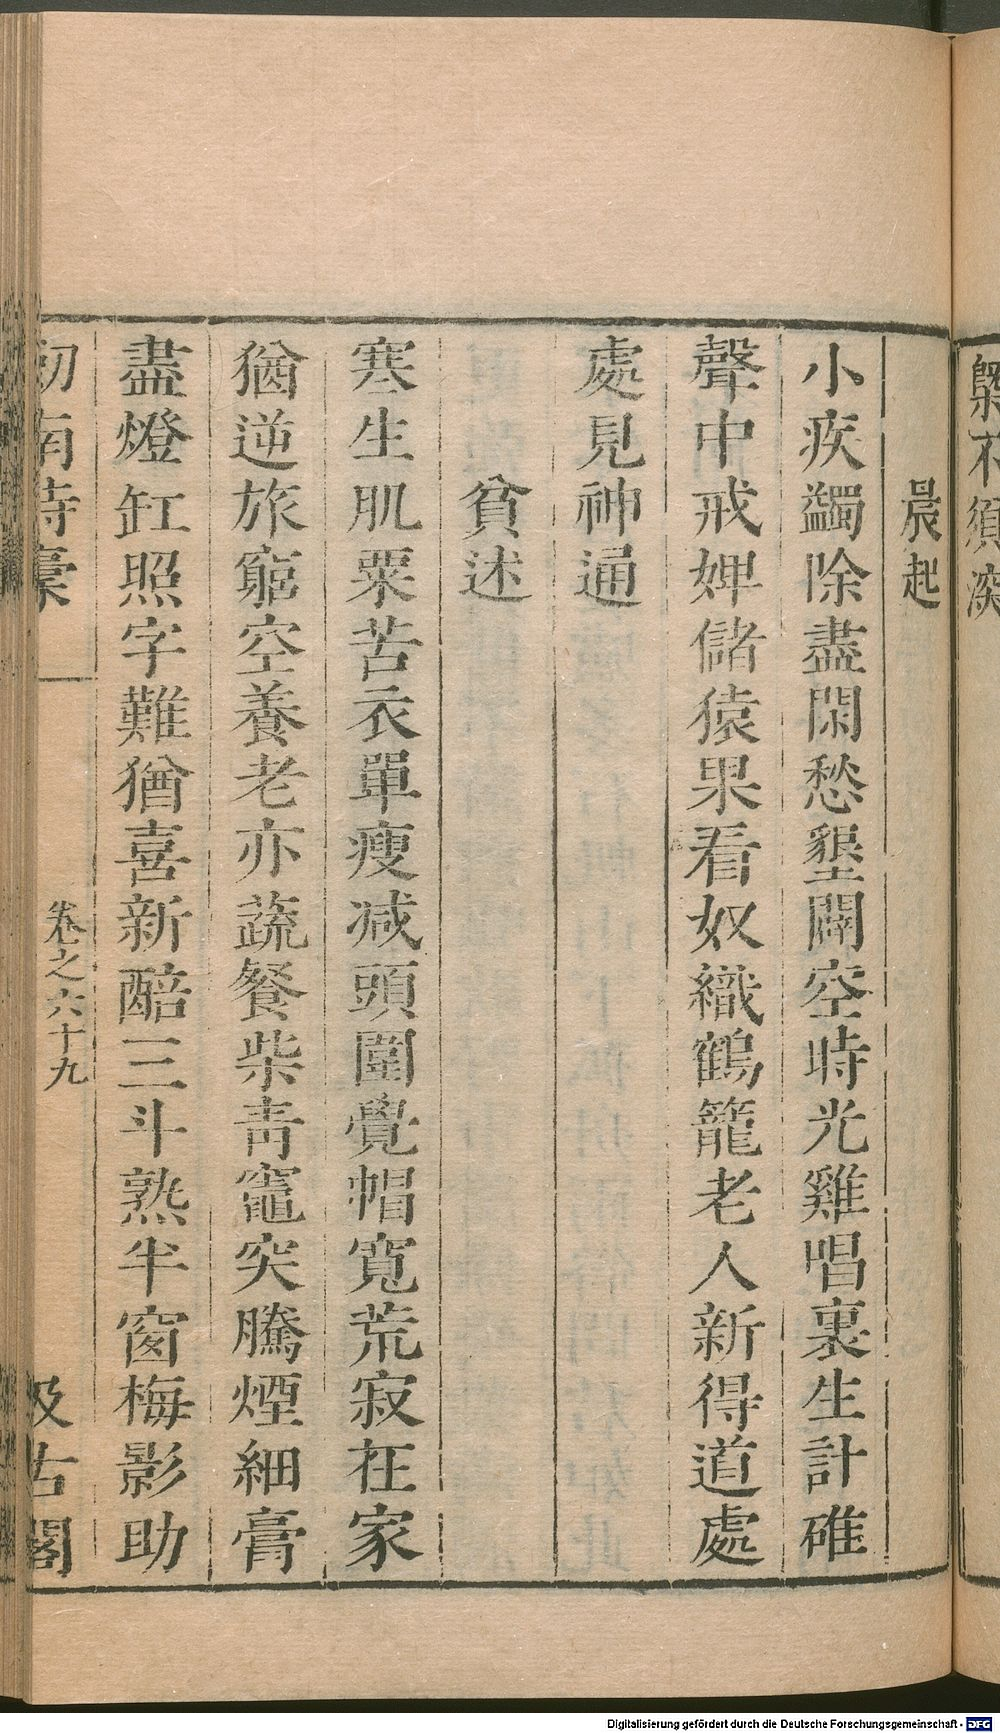 槩不須深
晨起
小疾蠲除盡閑愁墾闢空時光雞唱裏生計碓
聲中戒婢儲猿果看奴織鶴籠老人新得道處
處見神通
貧述
寒生肌粟苦衣單瘦减頭圍覺帽寛荒寂在家
猶逆旅窮空養老亦蔬餐柴青竈突騰煙細膏
盡燈缸照字難猶喜新醅三斗熟半窗梅影助
劒南詩稾
卷之六十九
汲古閣
Digitalisierung gefördert durch die Deutsche Forschungsgemeinschaft - DFG